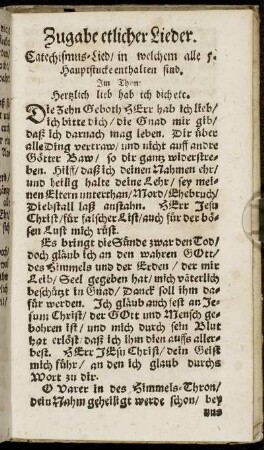 Zugabe etlicher Lieder.
Catechismus-Lied/ in welchem alle 5.
Hauptstucke enthalten sind.
Im Thon:
Hertzlich lieb hab ich dich etc.
Die Zehn Geboth HErr hab ich lieb/
ich bitte dich/ die Gnad mir gib/
daß ich darnach mag leben. Dir über
alle Ding vertraw/ und nicht auff andre
Götter Baw/ so dir gantz widerstre-
ben. Hilff/ daß ich deinen Nahmen ehr/
und heilig halte deine Lehr/ sey mei-
nen Eltern unterthan/ Mord/ Ehebruch/
Diebstall laß anstahn. HErr Jesu
Christ/ für falscher List/ auch für der bö-
sen Lust mich rüst.
Es bringt die Sünde zwar den Tod/
doch gläub ich an den wahren GOtt/
des Himmels und der Erden/ der mir
Leib/ Seel gegeben hat/ mich väterlich
beschützt in Gnad/ Danck soll ihm da-
für werden. Ich gläub auch fest an Je-
sum Christ/ der GOtt und Mensch ge-
bohren ist/ und mich durch sein Blut
hat erlöst/ daß ich ihm dien auffs aller-
best. HErr JEsu Christ/ dein Geist
mich führ/ an den ich glaub durchs
Wort zu dir.
O Vater in des Himmels-Thron/
dein Nahm geheiligt werde schon/ bey
uns